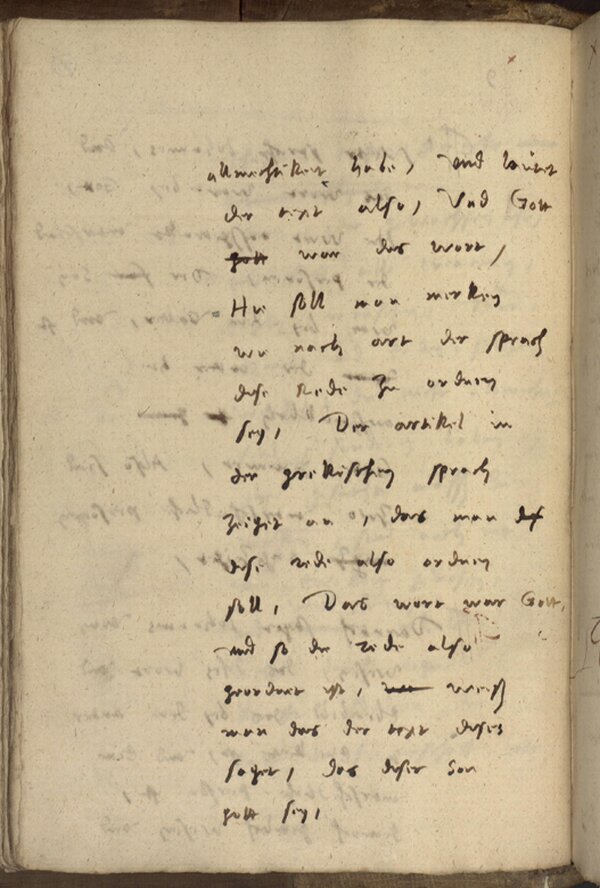 allmechtikeit habe, und lautet
der text also, Und Gott
gott war das wort,
Hie soll man merken
wie nach art der sprach
dise Rede zu ordnen
sey, Der artikel in
der grekischen sprach
zeiget an, das man
dise rede also ordnen
soll, Das wort war Gott,
und so die rede also
geordnet ist, weiß
man das der text dises
saget, das diser Son
gott sey,